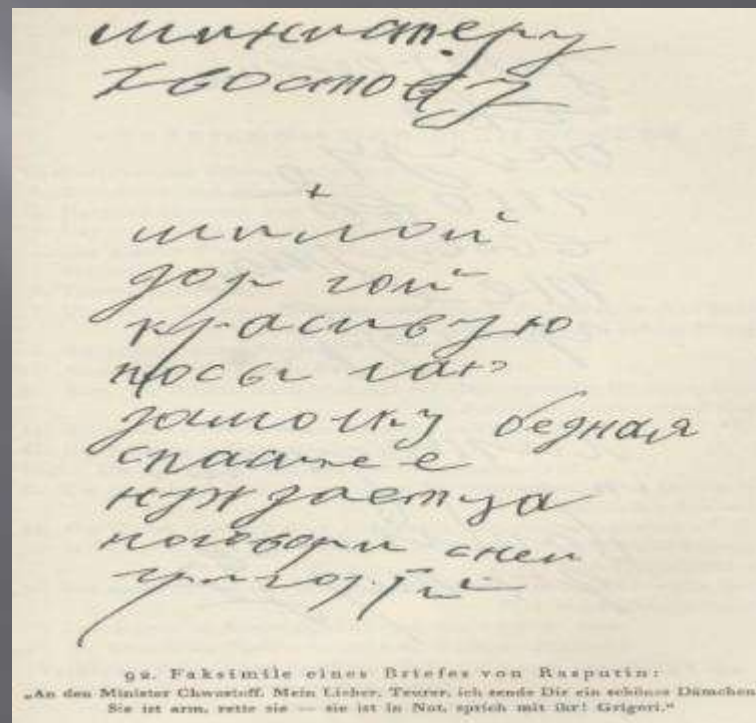 министеру
хвостову
+
милой
дор гой
красивую
посы лаю
дамочку бедная
спаси ее
нуждаетца
поговори сней
григорий
92. Faksimile eines Briefes von Rasputin:
„An den Minister Chwostoff. Mein Lieber, Teurer, ich sende Dir ein schönes Dämchen
Sie ist arm, rette sie — sie ist in Not, sprich mit ihr! Grigori.“